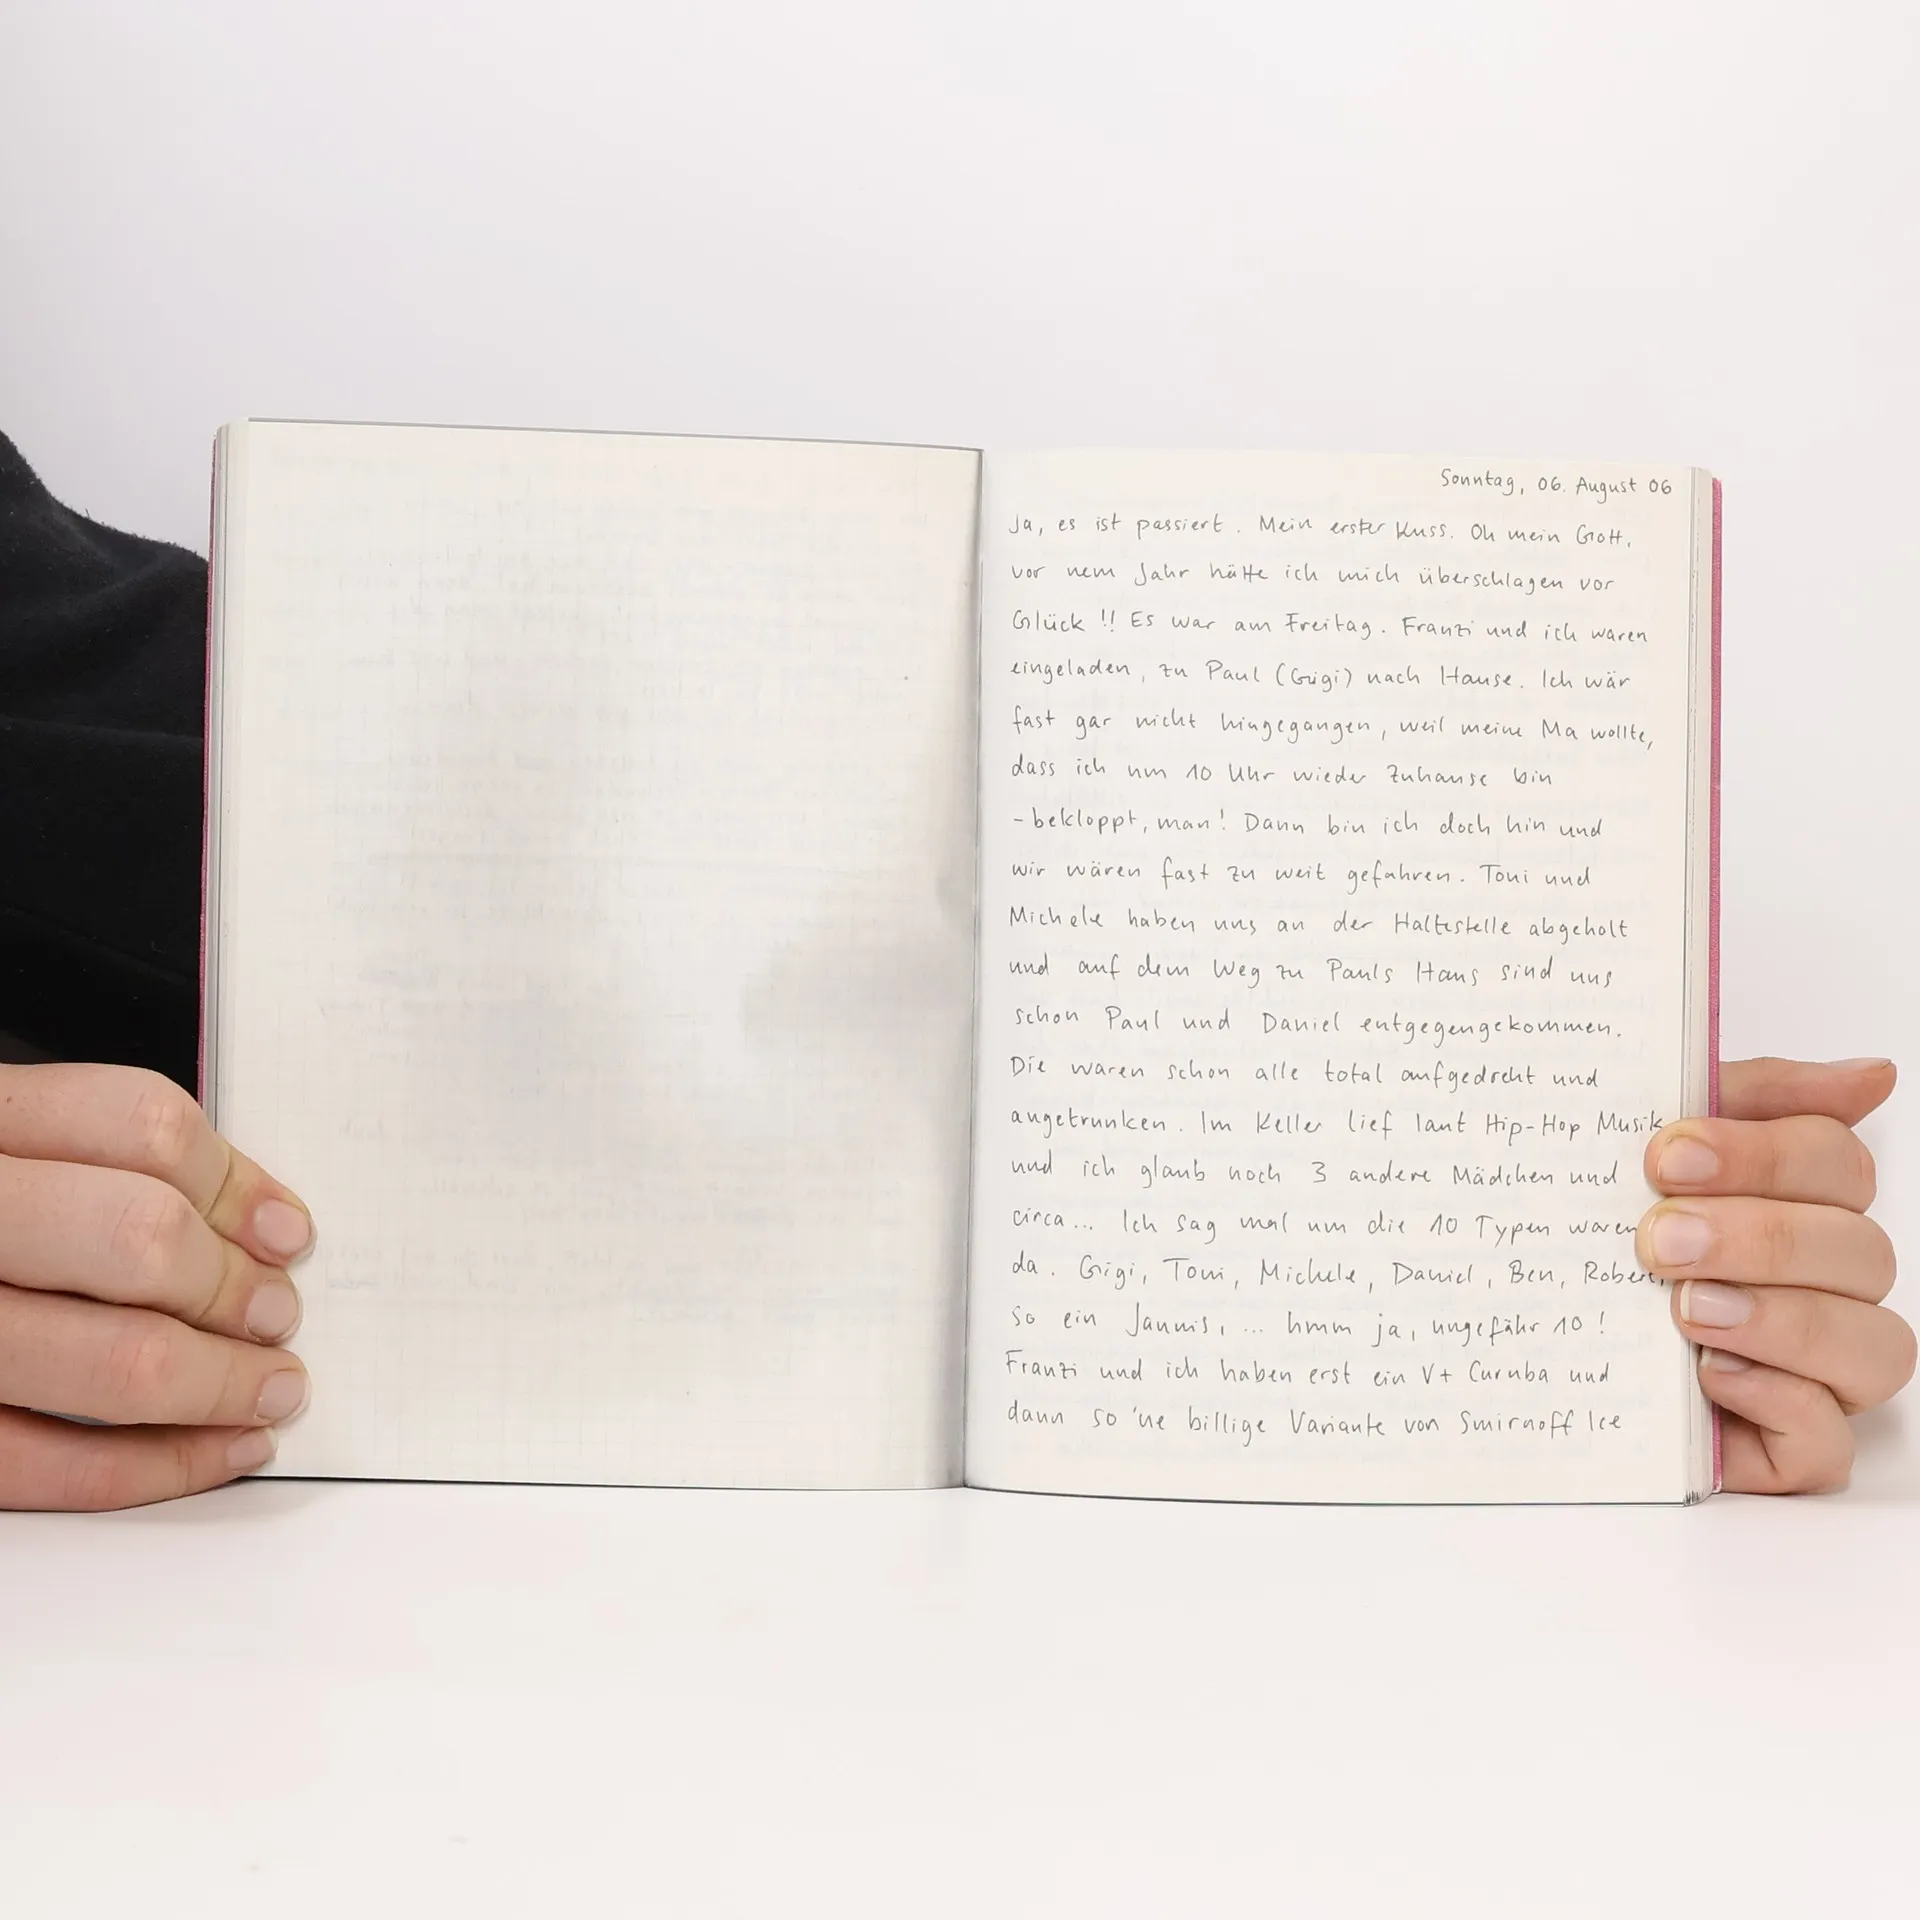 Sonntag, 06. August 06
Ja, es ist passiert. Mein erster Kuss. Oh mein Gott,
vor nem Jahr hätte ich mich überschlagen vor
Glück!! Es war am Freitag. Franzi und ich waren
eingeladen, zu Paul (Gigi) nach Hause. Ich wär
fast gar nicht hingegangen, weil meine Ma wollte,
dass ich um 10 Uhr wieder Zuhause bin
- bekloppt, man! Dann bin ich doch hin und
wir wären fast zu weit gefahren. Toni und
Michele haben uns an der Haltestelle abgeholt
und auf dem Weg zu Pauls Haus sind uns
schon Paul und Daniel entgegengekommen.
Die waren schon alle total aufgedreht und
angetrunken. Im Keller lief laut Hip-Hop Musik
und ich glaub noch 3 andere Mädchen und
circa... Ich sag mal um die 10 Typen waren
da. Gigi, Toni, Michele, Daniel, Ben, Robert,
so ein Jannis, ... hmm ja, ungefähr 10!
Franzi und ich haben erst ein V+ Curuba und
dann so 'ne billige Variante von Smirnoff Ice